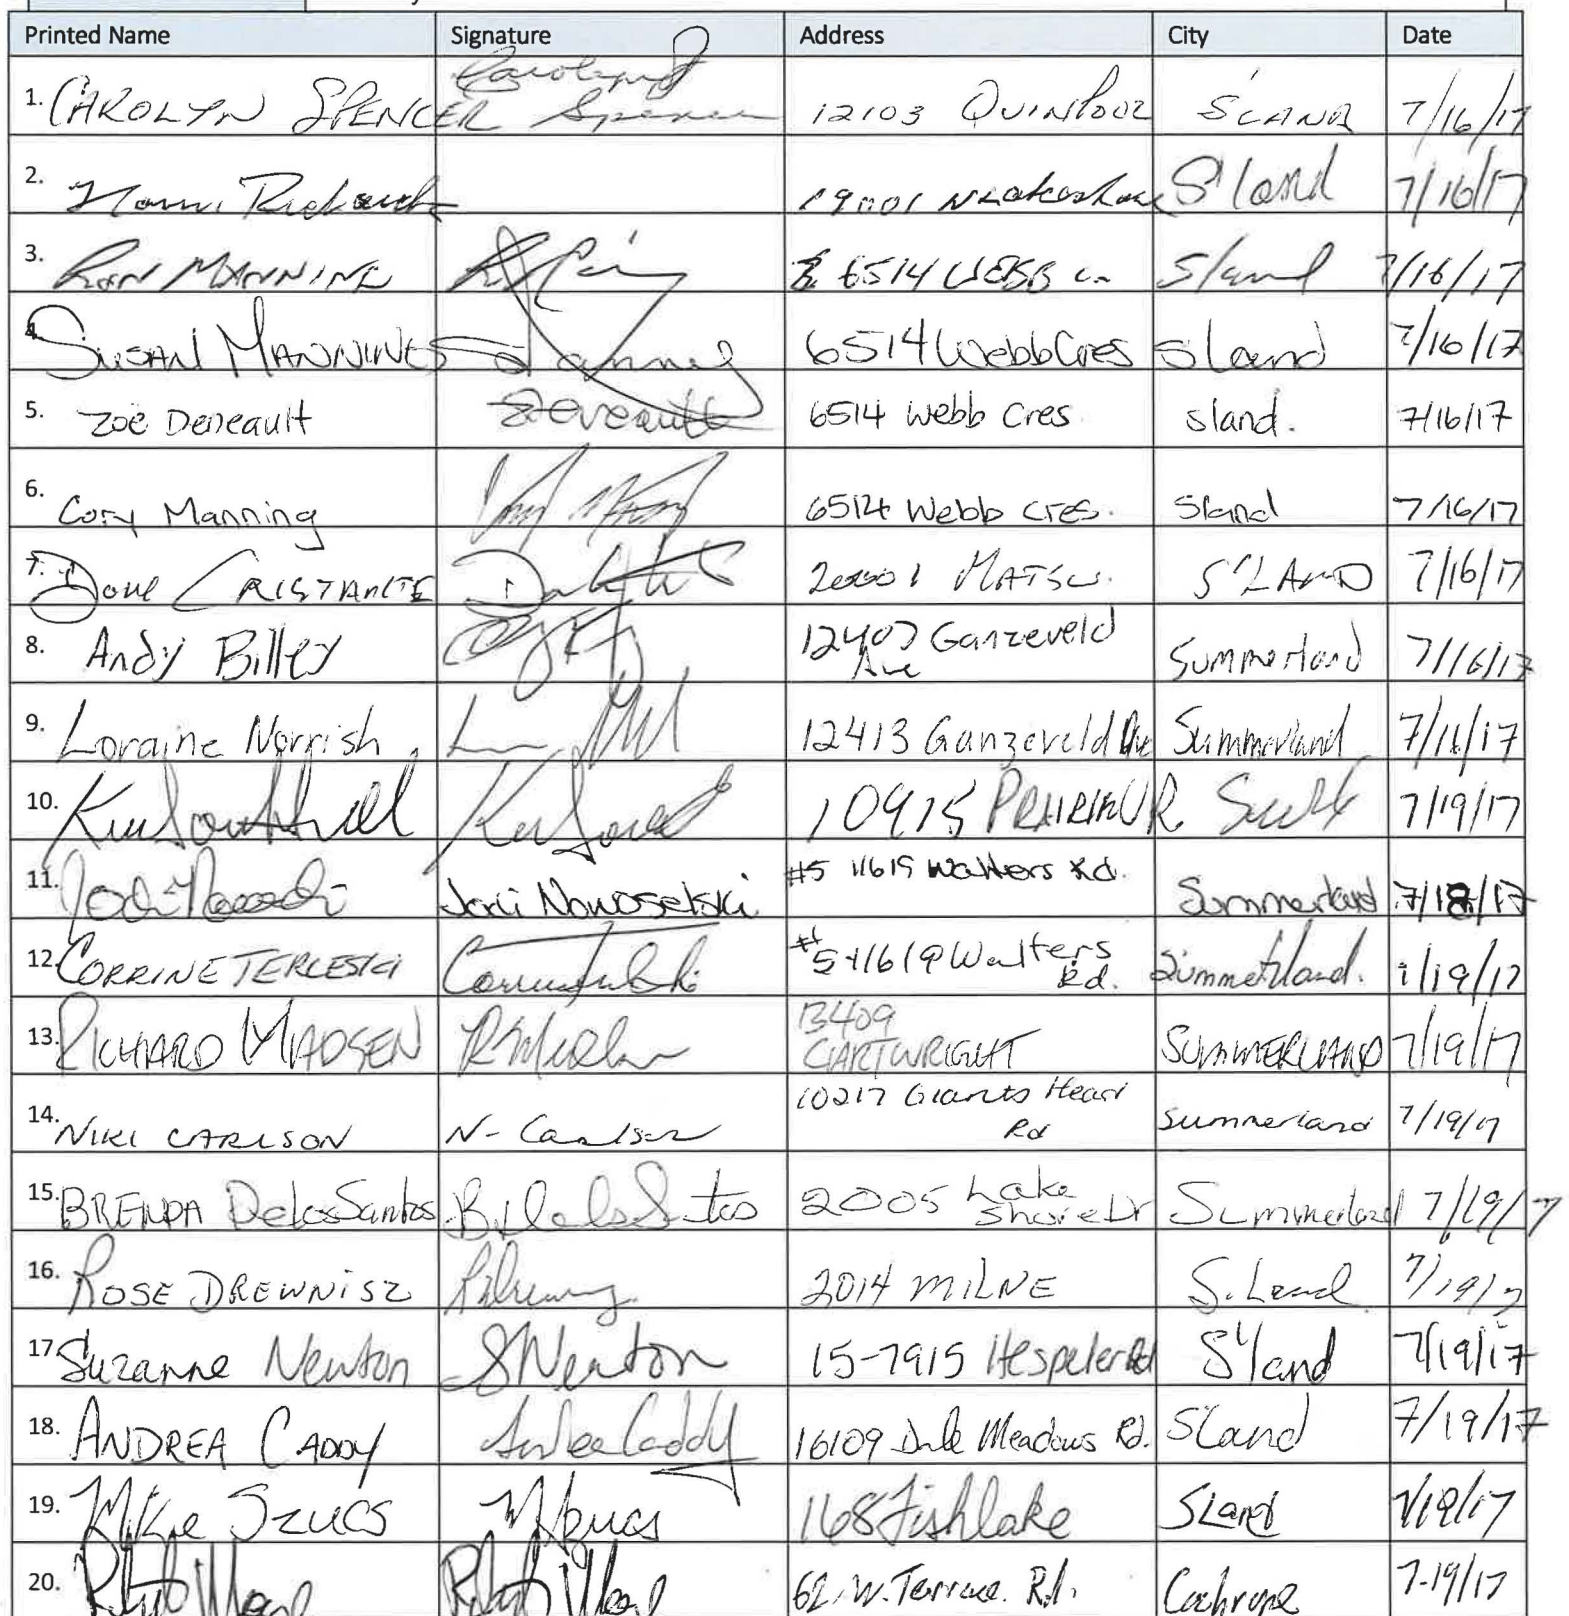 Printed Name Signature Address City Date
1. CAROLYN SPENCER Carolyn Spencer 12103 QUINPOOL S'LAND 7/16/17
2. 19001 S'land 7/16/17
3. RON MANNING 6514 WEBB S'land 7/16/17
4. SUSAN MANNING 6514 Webb Cres Sland 7/16/17
5. Zoë Deneault ZDeneault 6514 Webb Cres. Sland. 7/16/17
6. Cory Manning 6514 Webb cres. Sland 7/16/17
7. Doug CRISTANTE MATSU. S'LAND 7/16/17
8. Andy Billey 12407 Ganzeveld Ave Summerland 7/16/17
9. Loraine Norrish 12413 Ganzeveld Ave Summerland 7/16/17
10. 10915 PRAIRIE V 7/19/17
11. Jodi Nowoselski #5 11619 Walters Rd. Summerland 7/18/17
12. CORRINE TERLESKI #5 11619 Walters Rd. Summerland. 7/19/17
13. RICHARD MADSEN 13409 CARTWRIGHT SUMMERLAND 7/19/17
14. NIKI CARLSON N-Carlson 10217 Giants Head Rd Summerland 7/19/17
15. BRENDA DelosSantos B. DelosSantos 2005 Lake Shore Dr Summerland 7/19/17
16. ROSE DREWNISZ 2014 MILNE S. Land 7/19/17
17. Suzanne Newton SNewton 15-7915 Hespeler Rd S'land 7/19/17
18. ANDREA CADDY Andrea Caddy 16109 Dale Meadows Rd. Sland 7/19/17
19. Mike SZUCS MSzucs 168 Fishlake SLand 7/19/17
20. 62. W. Terrace. Rd. Cochrane 7-19/17